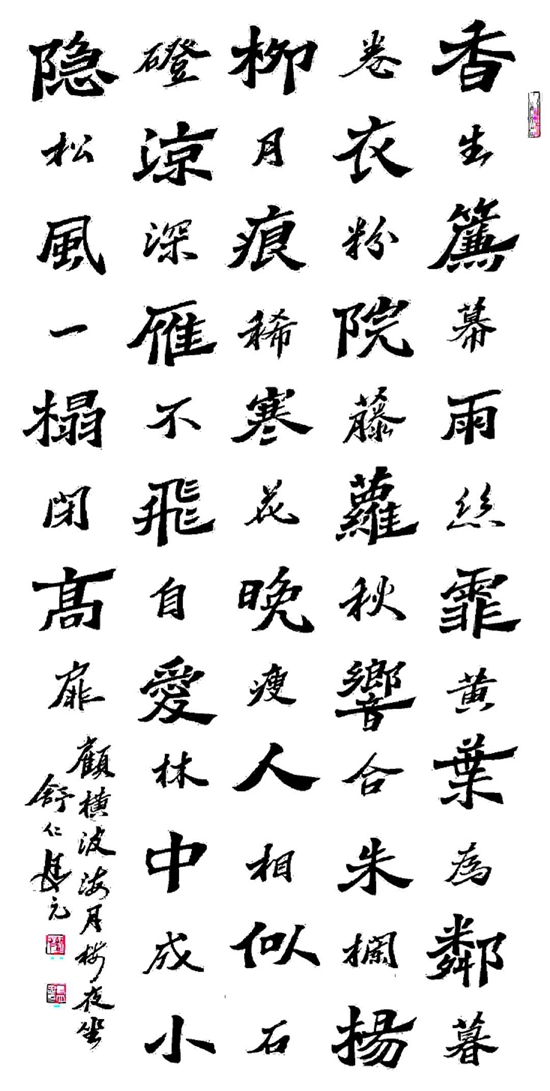 香生簾幕雨絲霏黄葉為鄰暮
卷衣粉院藤蘿秋響合朱欄揚
柳月痕稀寒花晚瘦人相似石
磴涼深雁不飛自愛林中成小
隐松風一榻閉髙扉
顧横波海月楼夜坐
舒仁元